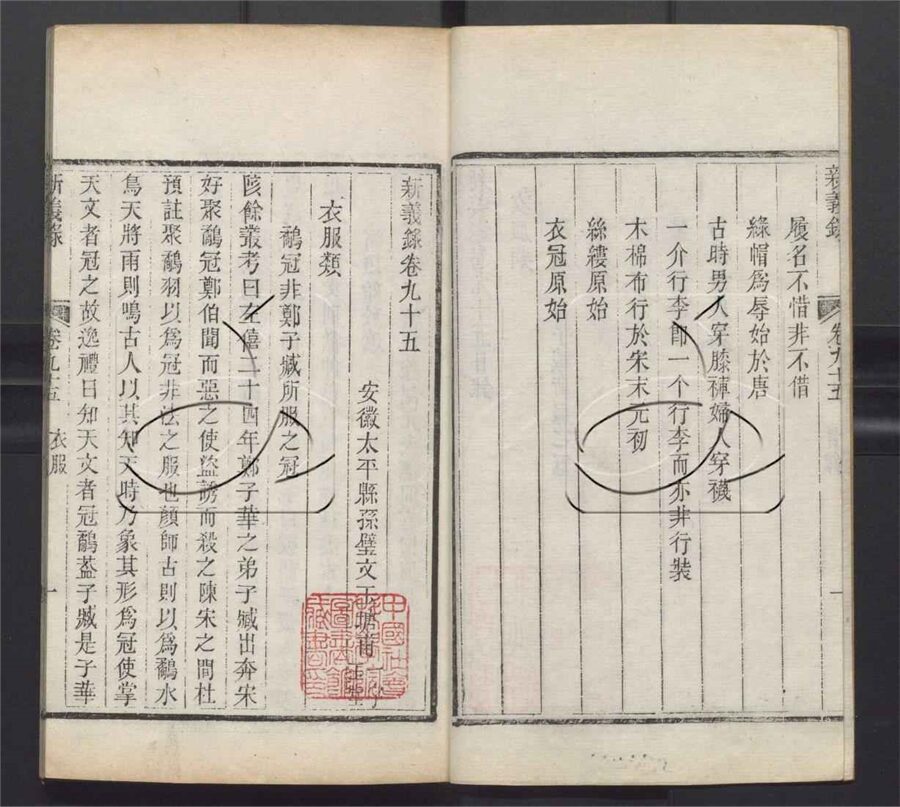 新義錄 卷九十五 一
履名不惜非不借
綠帽爲辱始於唐
古時男人穿膝褲婦人穿襪
一介行李即一个行李而亦非行裝
木棉布行於宋末元初
絲縷原始
衣冠原始
新義錄卷九十五
安徽太平縣孫璧文玉塘甫
中國社會
藏書印
衣服類
鷸冠非鄭子臧所服之冠
陔餘叢考曰左僖二十四年鄭子華之弟子臧出奔宋
好聚鷸冠鄭伯聞而惡之使盜誘而殺之陳宋之間杜
預註聚鷸羽以爲冠非法之服也顏師古則以爲鷸水
鳥天將雨則鳴古人以其知天時乃象其形爲冠使掌
天文者冠之故逸禮曰知天文者冠鷸葢子臧是子華
新義錄 卷九十五 衣服 一